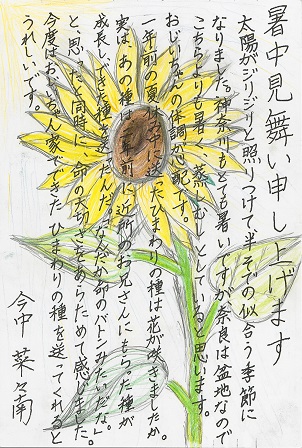 暑中見舞い申し上げます
太陽がジリジリと照りつけて半そでの似合う季節に
なりました。神奈川もとても暑いですが奈良は盆地なので
こちらよりも暑く蒸しむしとしていると思います。
おじいちゃんの体調が心配です。
一年前の夏休みに送ったひまわりの種は花が咲きましたか。
実は、あの種は 前に近所のお兄さんにもらった種が
成長してできた種を送ったんだ 「なんだか命のバトンみたいだな」
と思ったと同時に、命の大切さをあらためて感じました。
今度はおじいちゃん家でできたひまわりの種を送ってくれると
うれしいです。
今中 菜々南